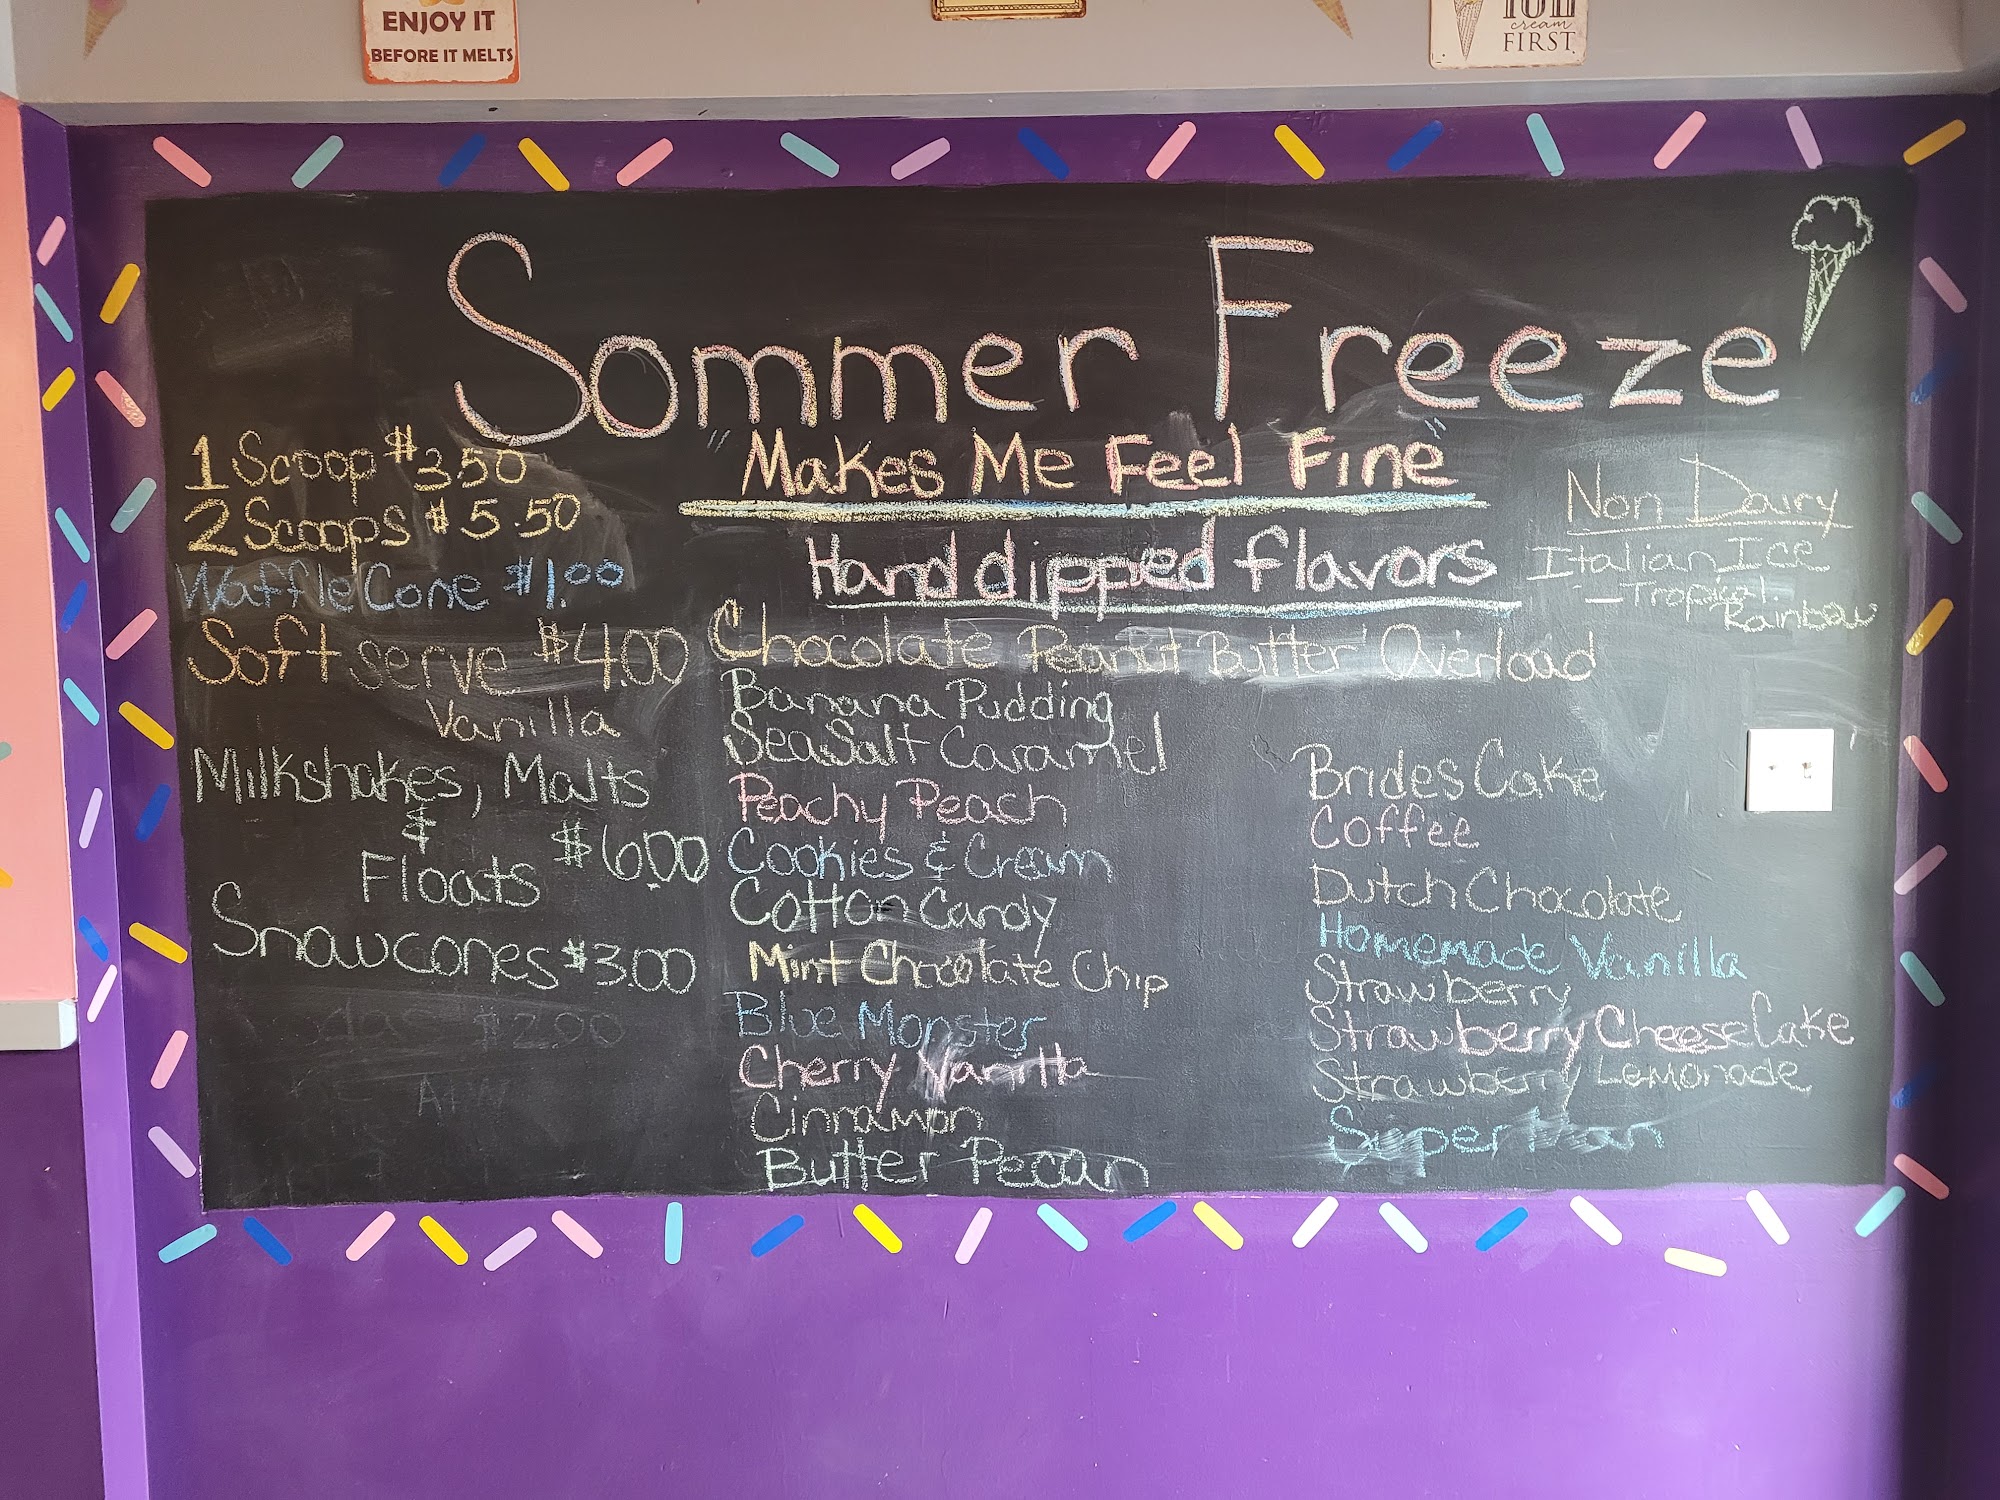 ENJOY IT
BEFORE IT MELTS
cream
FIRST
Sommer Freeze
"Makes Me Feel Fine"
1 Scoop $3.50
2 Scoops $5.50
Waffle Cone $1.00
Soft serve $4.00
Vanilla
Milkshakes, Malts
&
Floats $6.00
Snowcones $3.00
$2.00
Hand dipped flavors
Chocolate Peanut Butter Overload
Banana Pudding
Sea Salt Caramel
Peachy Peach
Cookies & Cream
Cotton Candy
Mint Chocolate Chip
Blue Monster
Cherry Vanilla
Cinnamon
Butter Pecan
Non Dairy
Italian Ice
- Tropical
Rainbow
Brides Cake
Coffee
Dutch Chocolate
Homemade Vanilla
Strawberry
Strawberry CheeseCake
Strawberry Lemonade
Superman